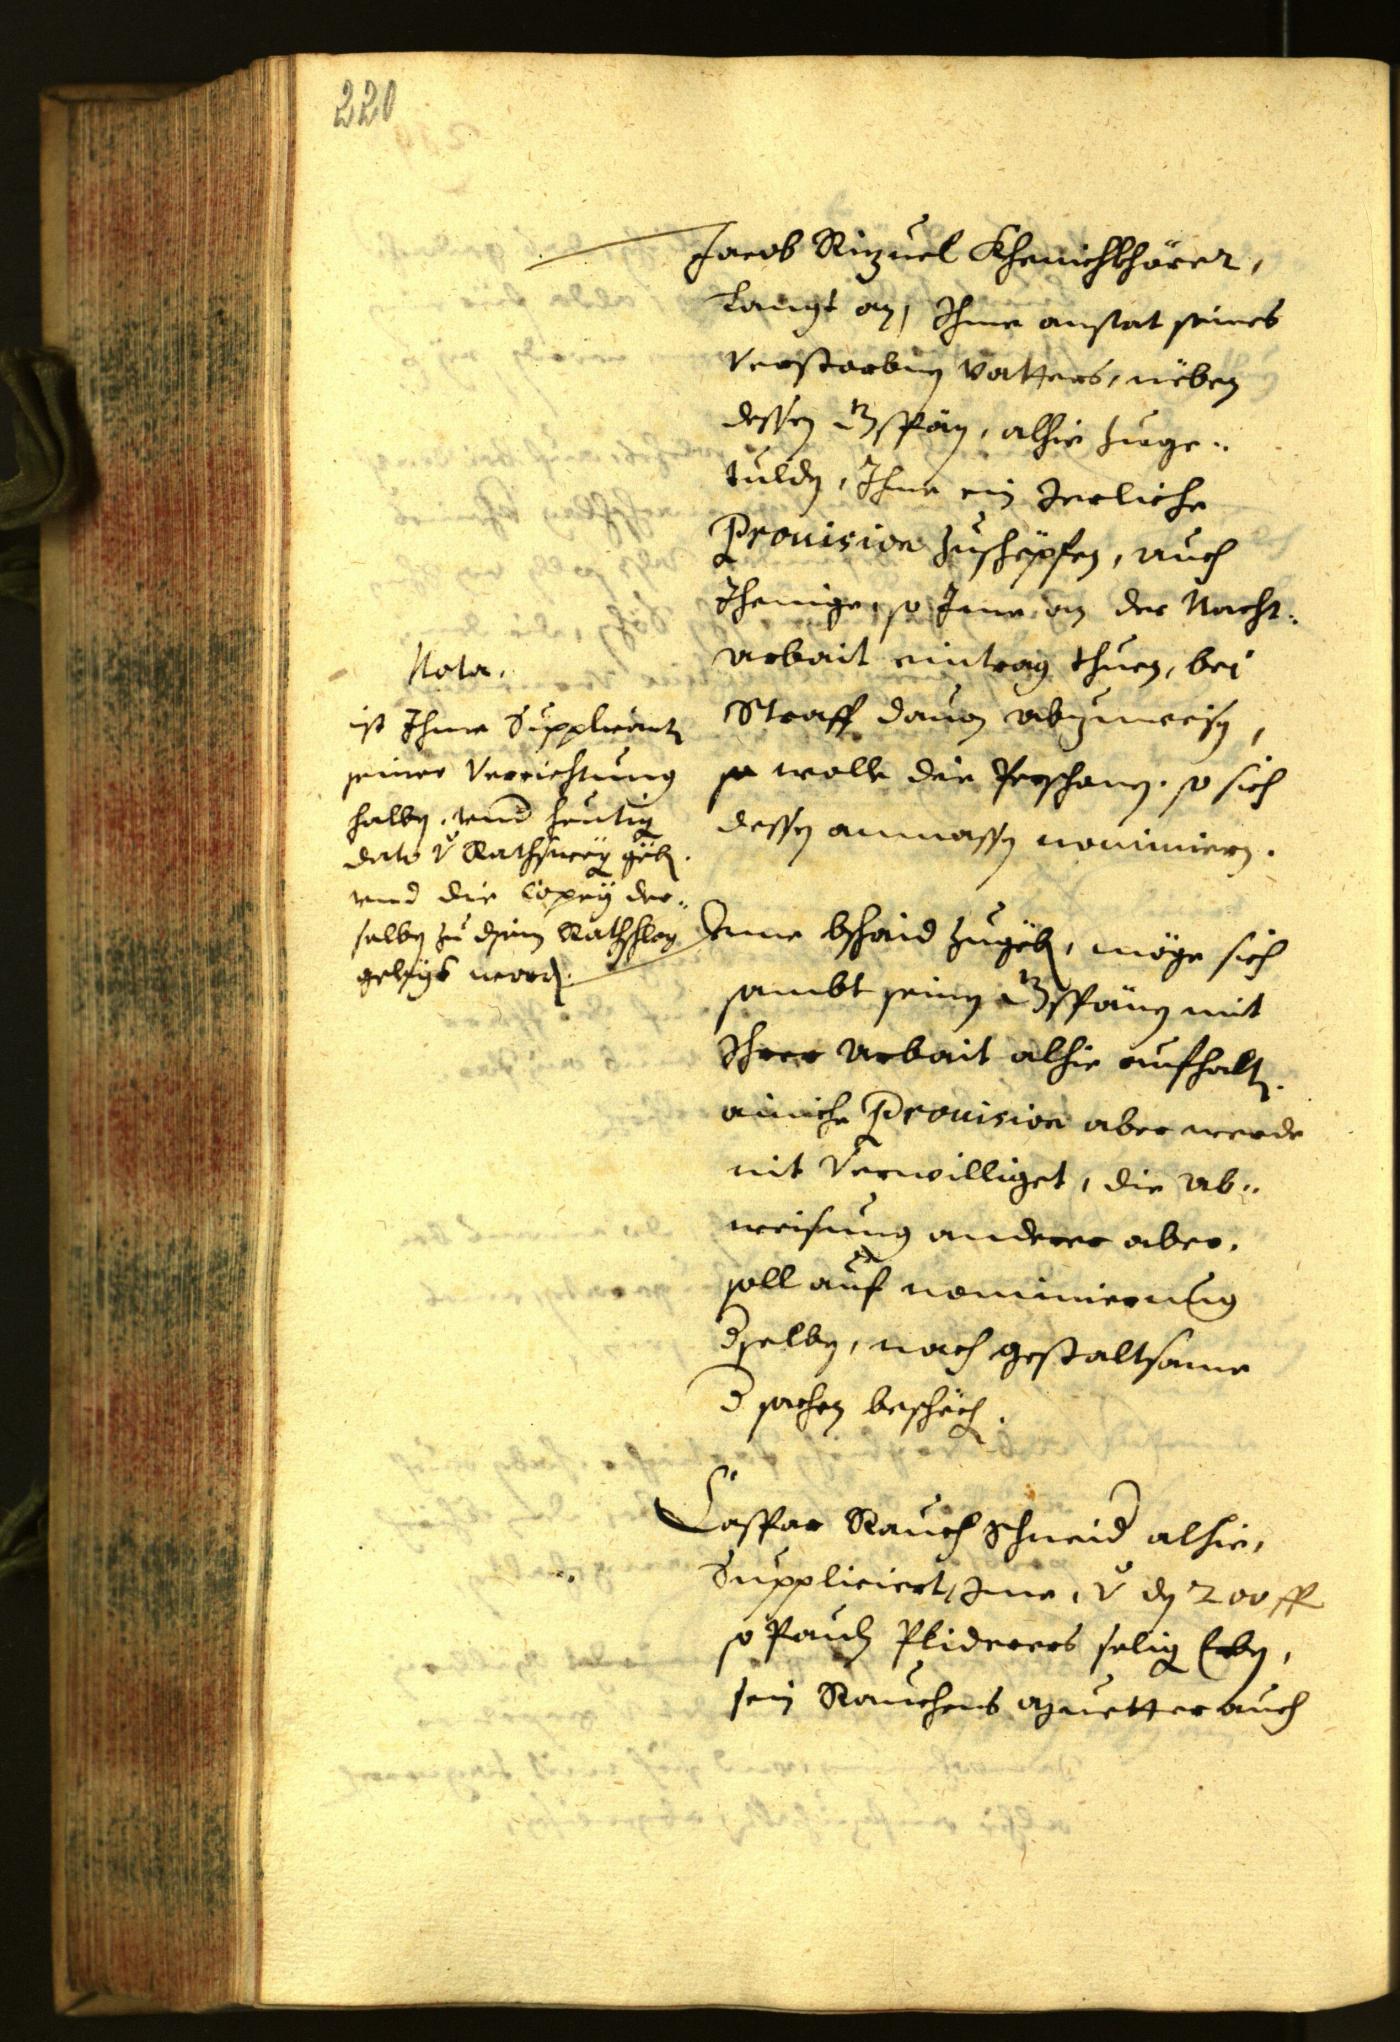 220
Jacob Rizuel Khemichkhörer,
Langt an, Ihme anstat seines
verstorbnen Vatters, neben
dessen Gspän, alhie zuge-
tulden, Ihme ein Jerliche
Prouision zuschöpfen, auch
Jhenige, so Jme an der Nacht-
arbait eintrag thuen, bei
Straff dauon abzuweisen,
so wolle die Persohnen so sich
dessen anmassen nominiern.
Nota.
ist Ihme Supplicanten
seiner Verrichtung
halben, vnd heutig
dato
vnd die Copey der-
selben zu disem Rathschlag
gelegt worden.
Jme bschaid zugeben, möge sich
sambt seinen Gspänen mit
Ihrer Arbait alhie aufhalten
ainiche Prouision aber werde
nit Verwilliget, die ab-
weisung anderer aber,
soll auf nominierung
derselben, nach gestaltsame
der sachen beschechen.
Caspar Rauch Schneider alhie,
Suppliciert, Jme, von den 200 ff
so Pauln Pliderers selig Erben,
sein Rauchens auch